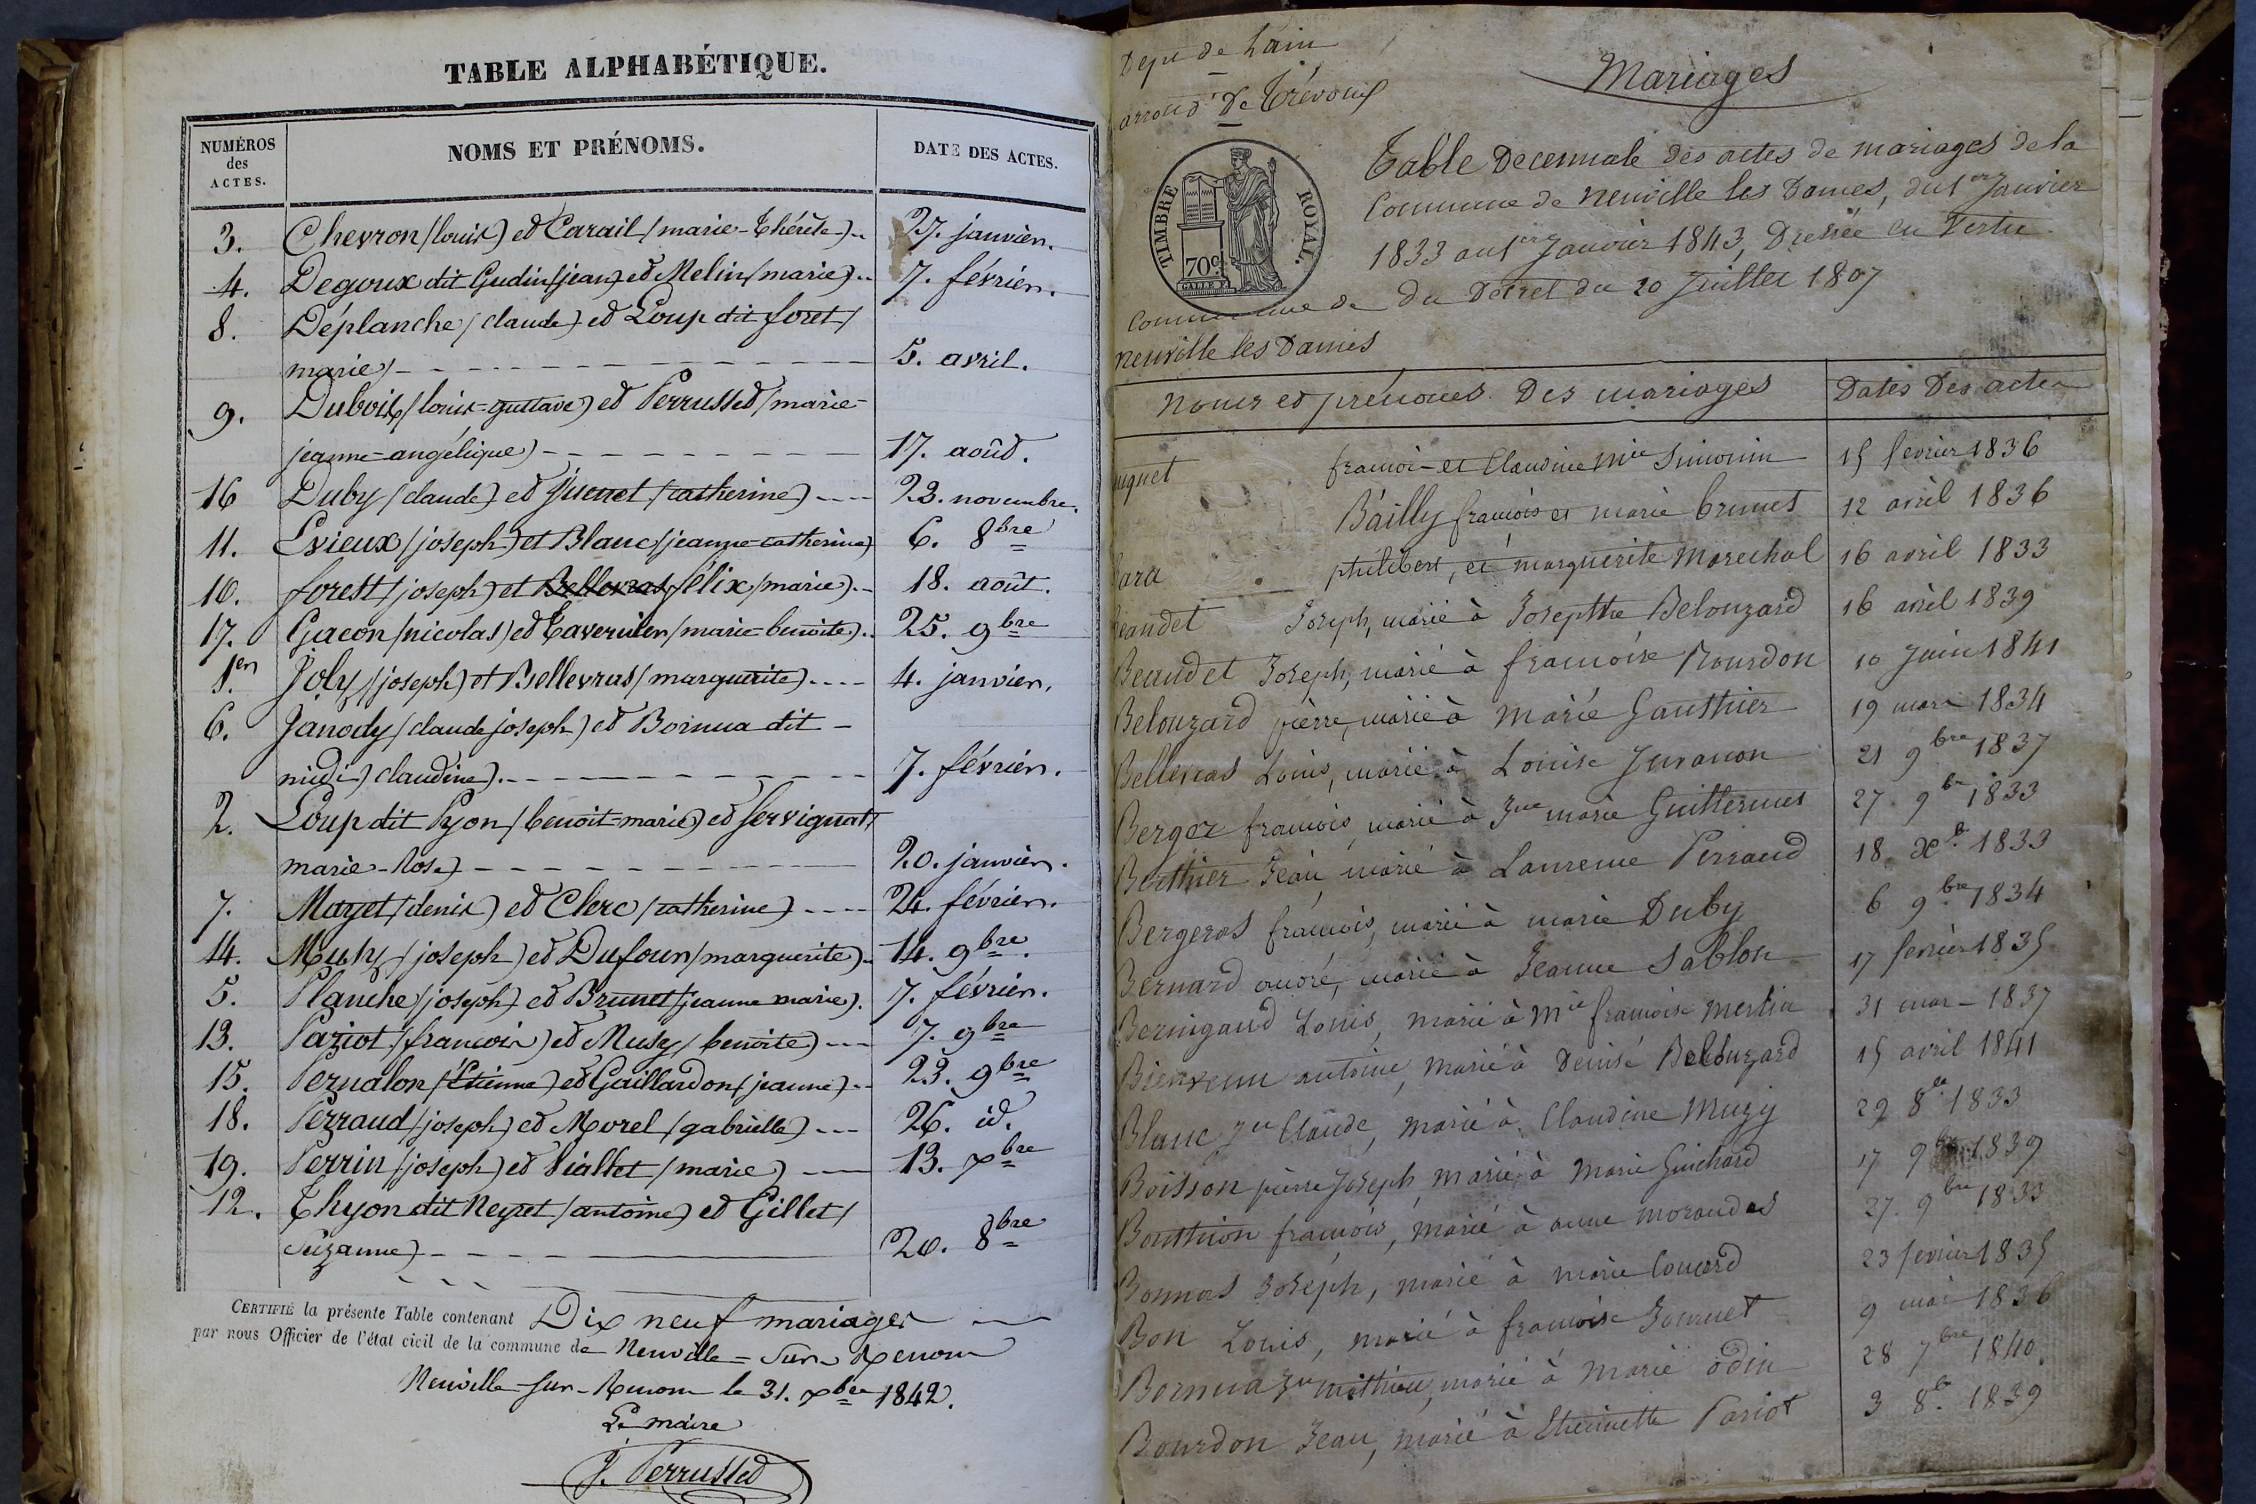 TABLE ALPHABÉTIQUE.
NUMÉROS des ACTES.
NOMS ET PRÉNOMS.
DATE DES ACTES.
3. Chevron (louis) et Carail (marie-thérèse).. 27. janvier.
4. Degoux dit Gudin (jean) et Melin (marie).. 7. février.
8. Déplanche (claude) et Loup dit foret (
marie) 5. avril.
9. Dubois (louis-gustave) et Perrusset (marie-
jeanne-angélique) 17. août.
16 Duby (claude) et (catherine) 23. novembre.
11. Evieux (joseph) et Blanc (jeanne-catherine) 6. 8bre
10. forest (joseph) et félix (marie).. 18. août.
17. Gacon (nicolas) et Tavernier (marie-benoite).. 25. 9bre
1er Joly (joseph) et Bellevras (marguerite).... 4. janvier.
6. Janody (claude joseph) et Bornua dit
claudine). 7. février.
2. Loup dit Pyon (benoit-marie) et Servignat (
marie-Rose) 20. janvier.
7. Mayet (denis) et Clerc (catherine) 24. février.
14. (joseph) et Dufour (marguerite).. 14. 9bre.
5. Planche (joseph) et Brunet (jeanne marie). 7. février.
13. Pariot (françois) et Musy (benoite) 7. 9bre
15. Pernalon (Étienne) et Gaillardon (jeanne).. 23. 9bre
18. Perraud (joseph) et Morel (gabrielle) 26. id.
19. Perrin (joseph) et Viallet (marie) 13. xbre
12. Thyon dit Neyret (antoine) et Gillet (
Suzanne) 20. 8bre
CERTIFIÉ la présente Table contenant Dix neuf mariages
par nous Officier de l'état cicil de la commune de Neuville-sur-Renom
Neuville-sur-Renom le 31. xbre 1842.
Le maire
J. Perrusset
Dept de L'ain
arrond't De Trévoux
Mariages
TIMBRE ROYAL.
70c.
Table Decennale des actes de mariages de la
Commune de Neuville les Dames, du 1er Janvier
1833 au 1er Janvier 1843, Dressée en Vertu
Du Décret du 20 Juillet 1807
Commune de
neuville les Dames
Noms et prénoms Des mariages
Dates Des actes
uguet francois et Claudine Mie Simonin 15 fevrier 1836
Bailly francois et marie brunet 12 avril 1836
philibert, et marguerite Marechal 16 avril 1833
Beaudet Joseph, marié à Josephte Belouzard 16 avril 1839
Beaudet Joseph, marié à francoise Bourdon 10 Juin 1841
Belouzard pierre, marié à Marie Gauthier 19 mars 1834
Bellevras Louis, marié à Louise Juvanon 21 9bre 1837
Berger francois, marié à Jne marie Guillermet 27 9bre 1833
Berthier Jean, marié à Laurence Perraud 18 Xb. 1833
Bergeros francois, marié à marie Duby 6 9bre 1834
Bernard andré, marié à Jeanne Sablon 17 fevrier 1835
Bernigaud Louis, marié à Mie francoise Merlin 31 mars 1837
Bienvenu antoine, marié à Denise Belouzard 15 avril 1841
Blanc Jn Claude, marié à Claudine Muzy 29 8b. 1833
Boisson pierre Joseph, marié à Marie Guichard 17 9bre 1839
Bouthion francois, marié à anne morandas 27. 9bre 1833
Bonnas Joseph, marié à marie Couard 23 fevrier 1835
Bon Louis, marié à francoise Journet 9 mai 1836
Bornua Jn Mathieu, marié à Marie Odin 28 7bre 1840.
Bourdon Jean, marié à Etiennette Pariot 3 8b. 1839